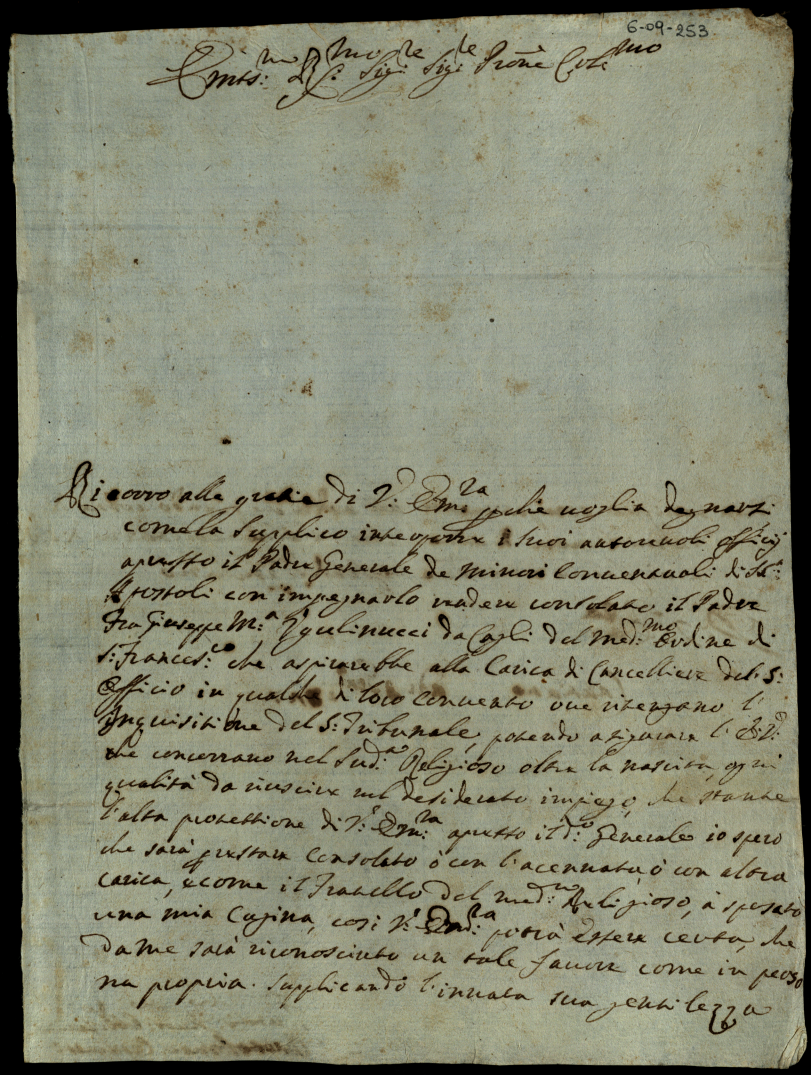 6-09-253
Em:mo R:mo Sig:re Sig:re Prone Col:mo
Ricorro alle gratie di V: Em:za perche uoglia degnarsi
come la supplico interporre i suoi autoreuoli officij
apresso il Padre Generale de Minori Conuentuali di SS:
Apostoli con impegnarlo rendere consolato il Padre
Fra Giuseppe M:a da Cagli del med:mo Ordine di
S: Frances:co che aspirarebbe alla Carica di Cancelliere del S:
Officio in qualche di loro Conuento oue ritengano l'
Inquisitione del S: Tribunale, potendo asicurare l'E: V:
che concorrano nel Sud:o Religioso oltre la nascita, ogni
qualità da riuscire nel desiderato impiego, che stante
l'alta protettione di V: Em:za apresso il d:o Generale io spero
che sarà per restare Consolato ò con l'acennata, ò con altra
carica, e come il Fratello del med:mo Religioso, à sposato
una mia Cugina, così V: Em:za potrà essere certa, che
da me sarà riconosciuto un tale fauore come in perso
na propria. Supplicando l'innata sua gentilezza